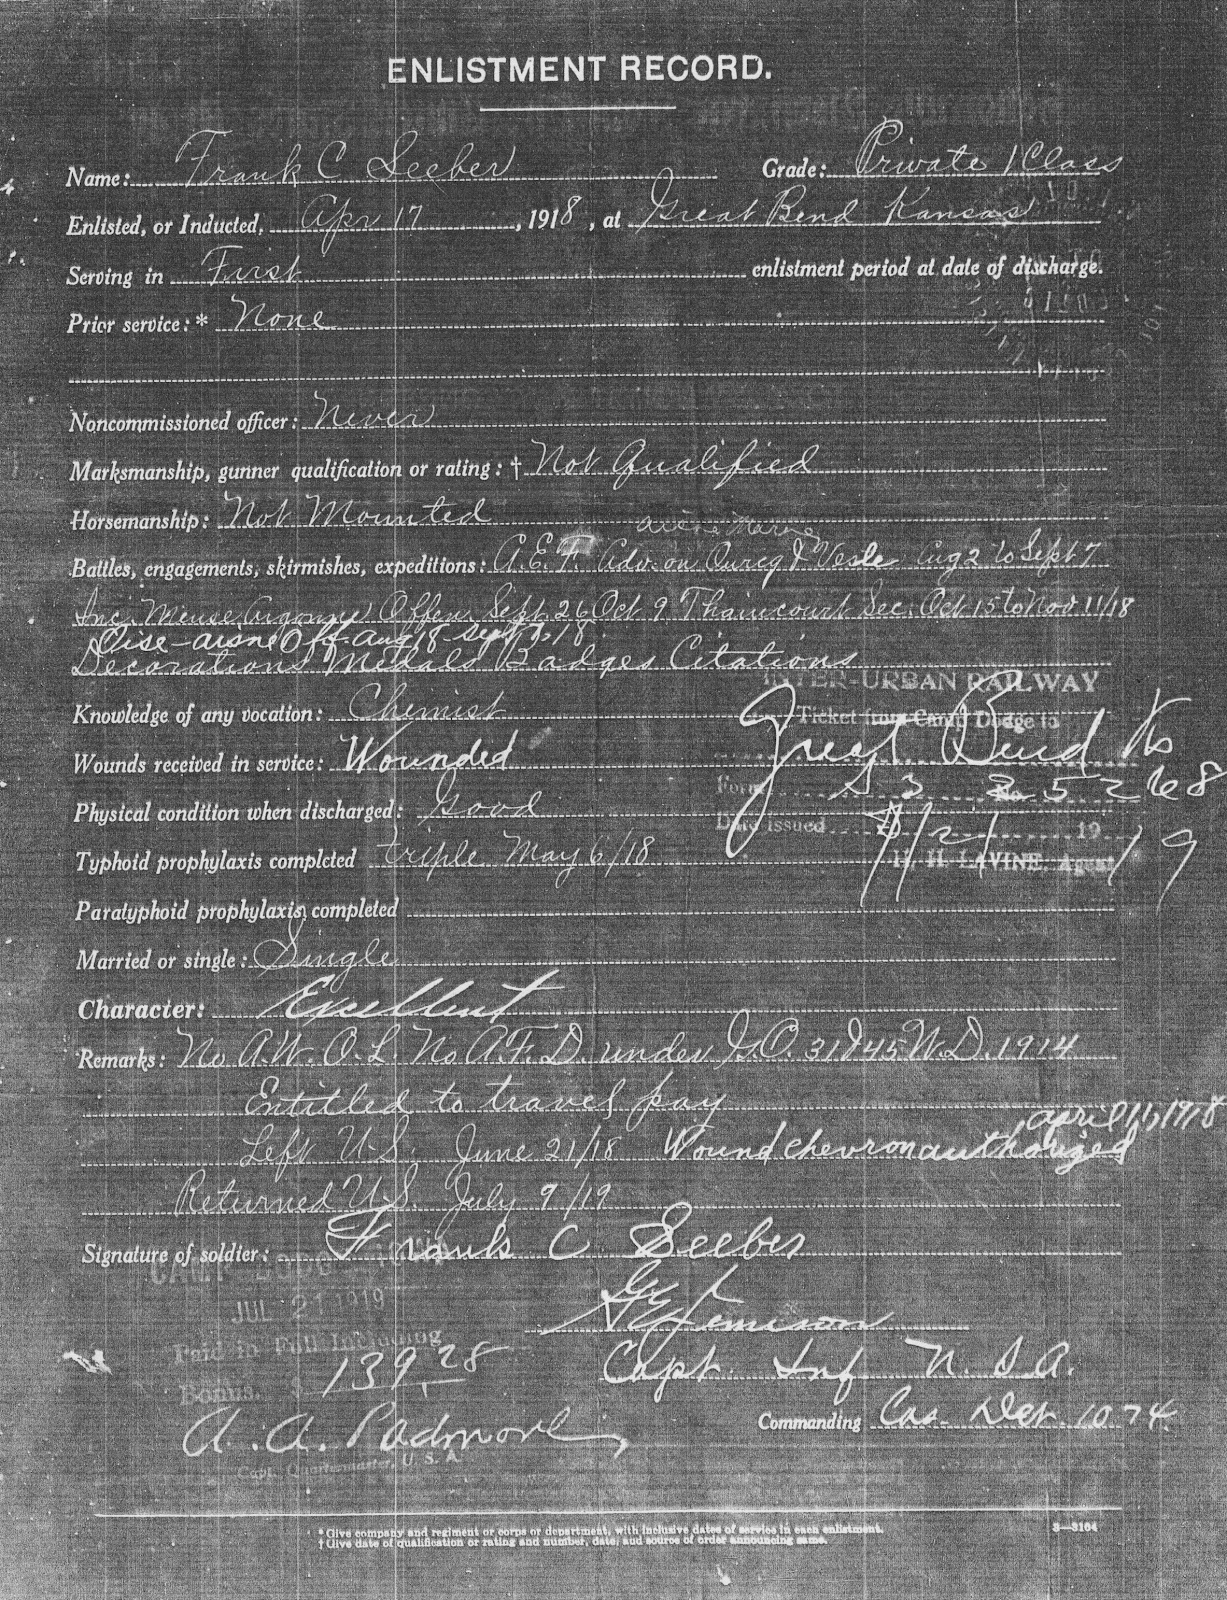 ENLISTMENT RECORD.
Name: Frank C Seeber Grade: Private 1 Class
Enlisted, or Inducted, Apr 17, 1918, at Great Bend Kansas
Serving in First enlistment period at date of discharge.
Prior service:* None
Noncommissioned officer: Never
Marksmanship, gunner qualification or rating: † Not Qualified
Horsemanship: Not Mounted
Aisne Marne
Battles, engagements, skirmishes, expeditions: A.E.F. Adv. on Ourcq & Vesle Aug 2 to Sept 7
Inc. Meuse Argonne Offen Sept. 26 Oct 9 Thaincourt Sec. Oct 15 to Nov. 11/18
Oise-aisne Off aug 18 - sept 18
Decorations Medals Badges Citations
INTER-URBAN RAILWAY
Knowledge of any vocation: Chemist
Ticket from Camp Dodge to
Great Bend Ks
Wounds received in service: Wounded
Form S 3 2 5 2 6 8
Physical condition when discharged: Good
Date issued 7/21 19 19
Typhoid prophylaxis completed triple May 6/18
H. H. LAVINE, Agent
Paratyphoid prophylaxis completed
Married or single: Single
Character: Excellent
Remarks: No A.W.O.L. No A.F.D. under G.O. 31 & 45 W.D. 1914
Entitled to travel pay
april 11, 1918
Left U.S. June 21/18 Wound chevron authorized
Returned U.S. July 9/19
Signature of soldier: Frank C Seeber
CAMP DODGE, IOWA
JUL 21 1919
Jemison
Paid in Full Including
Bonus. $ 139.28
Capt. Inf U.S.A.
Commanding Cas. Det. 1074.
A. A. Padmore
Capt. Quartermaster, U. S. A.
* Give company and regiment or corps or department, with inclusive dates of service in each enlistment. 3—3164
† Give date of qualification or rating and number, date, and source of order announcing same.